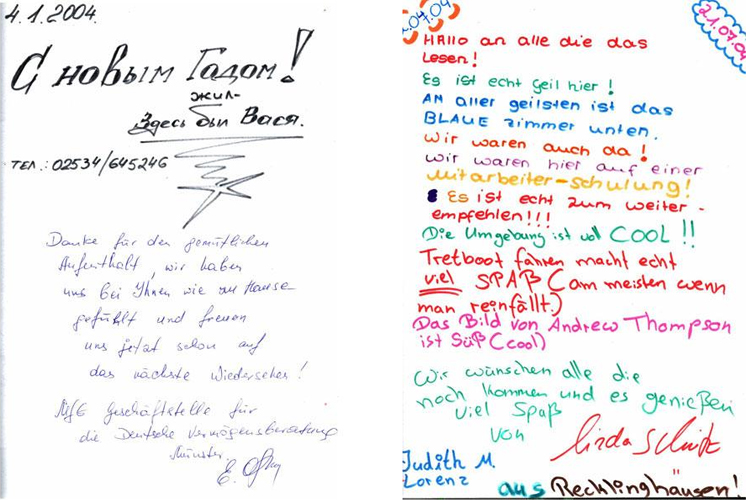 4.1.2004.
С новым Гадом!
жил-
Здесь был Вася.
ТЕЛ.: 02534/645246
Danke für den gemütlichen
Aufenthalt, wir haben
uns bei Ihnen wie zu Hause
gefühlt und freuen
uns jetzt schon auf
das nächste Wiedersehen!
Geschäftstelle für
die Deutsche Vermögensberatung
Münster
E.
21.07.04
HAllo an alle die das
Lesen!
Es ist echt Geil hier!
AM aller geilsten ist das
BLAUE zimmer unten.
Wir waren auch da!
wir waren hier auf einer
Mitarbeiter-schulung!
Es ist echt zum weiter-
empfehlen!!!
Die Umgebung ist voll COOL!!
Tretboot fahren macht echt
viel SPAß (am meisten wenn
man reinfällt.)
Das Bild von Andrew Thompson
ist Süß (cool)
Wir wünschen alle die
noch kommen und es genießen
viel Spaß
von
Linda Schulz
Judith M.
Lorenz
aus Recklinghäusen!